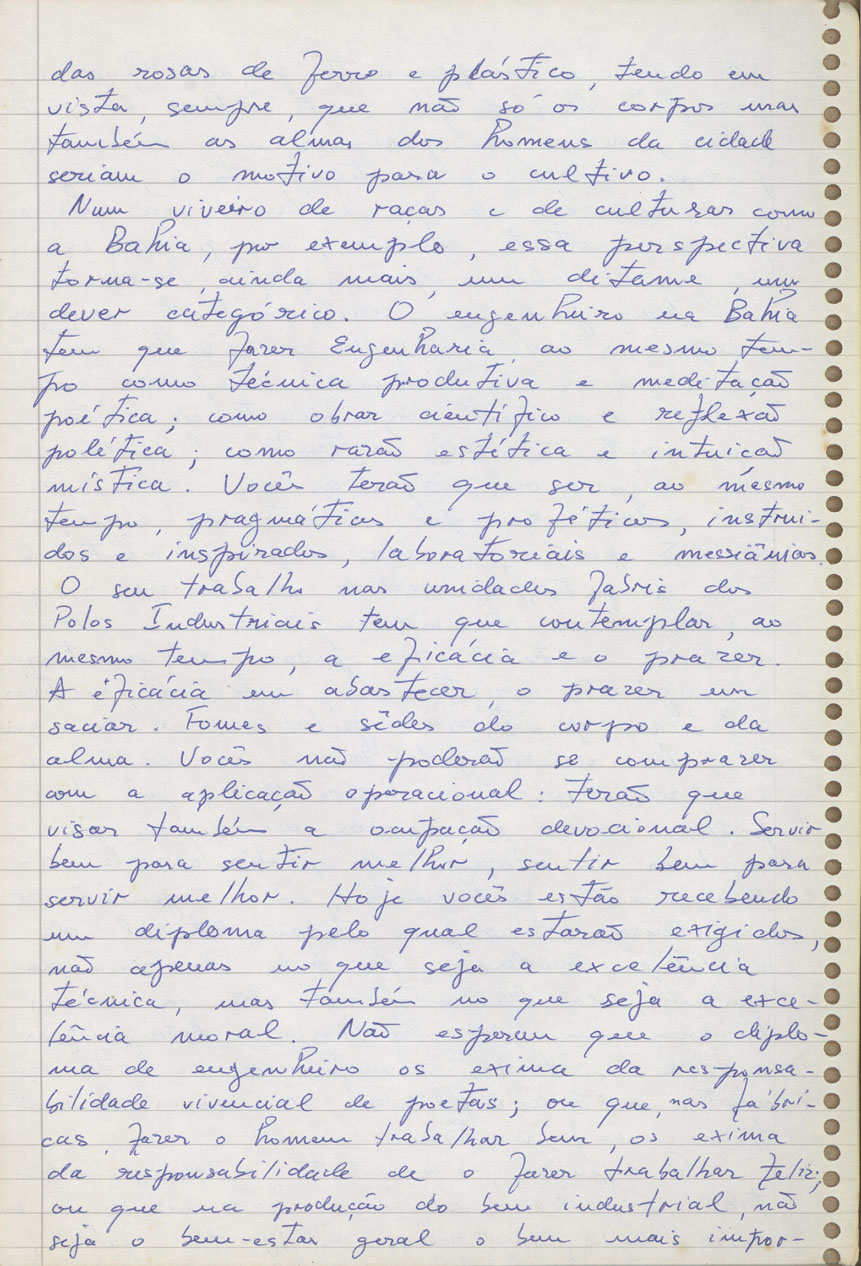 das rosas de ferro e plástico, tendo em
vista, sempre, que não só os corpos mas
também as almas dos homens da cidade
seriam o motivo para o cultivo.
Num viveiro de raças e de culturas como
a Bahia, por exemplo, essa perspectiva
torna-se, ainda mais, um ditame, um
dever categórico. O engenheiro na Bahia
tem que fazer Engenharia, ao mesmo tem-
po como técnica produtiva e meditação
poética; como obrar científico e reflexão
política; como razão estética e intuição
mística. Vocês terão que ser, ao mesmo
tempo, pragmáticos e proféticos, instruí-
dos e inspirados, laboratoriais e messiânicos.
O seu trabalho nas unidades fabris dos
Polos Industriais tem que contemplar, ao
mesmo tempo, a eficácia e o prazer.
A eficácia em abastecer, o prazer em
saciar. Fomes e sêdes do corpo e da
alma. Vocês não poderão se comprazer
com a aplicação operacional: terão que
visar também a ocupação devocional. Servir
bem para sentir melhor, sentir bem para
servir melhor. Hoje vocês estão recebendo
um diploma pelo qual estarão exigidos,
não apenas no que seja a excelência
técnica, mas também no que seja a exce-
lência moral. Não esperem que o diplo-
ma de engenheiro os exima da responsa-
bilidade vivencial de poetas; ou que, nas fábri-
cas, fazer o homem trabalhar bem, os exima
da responsabilidade de o fazer trabalhar feliz;
ou que na produção do bem industrial, não
seja o bem-estar geral o bem mais impor-